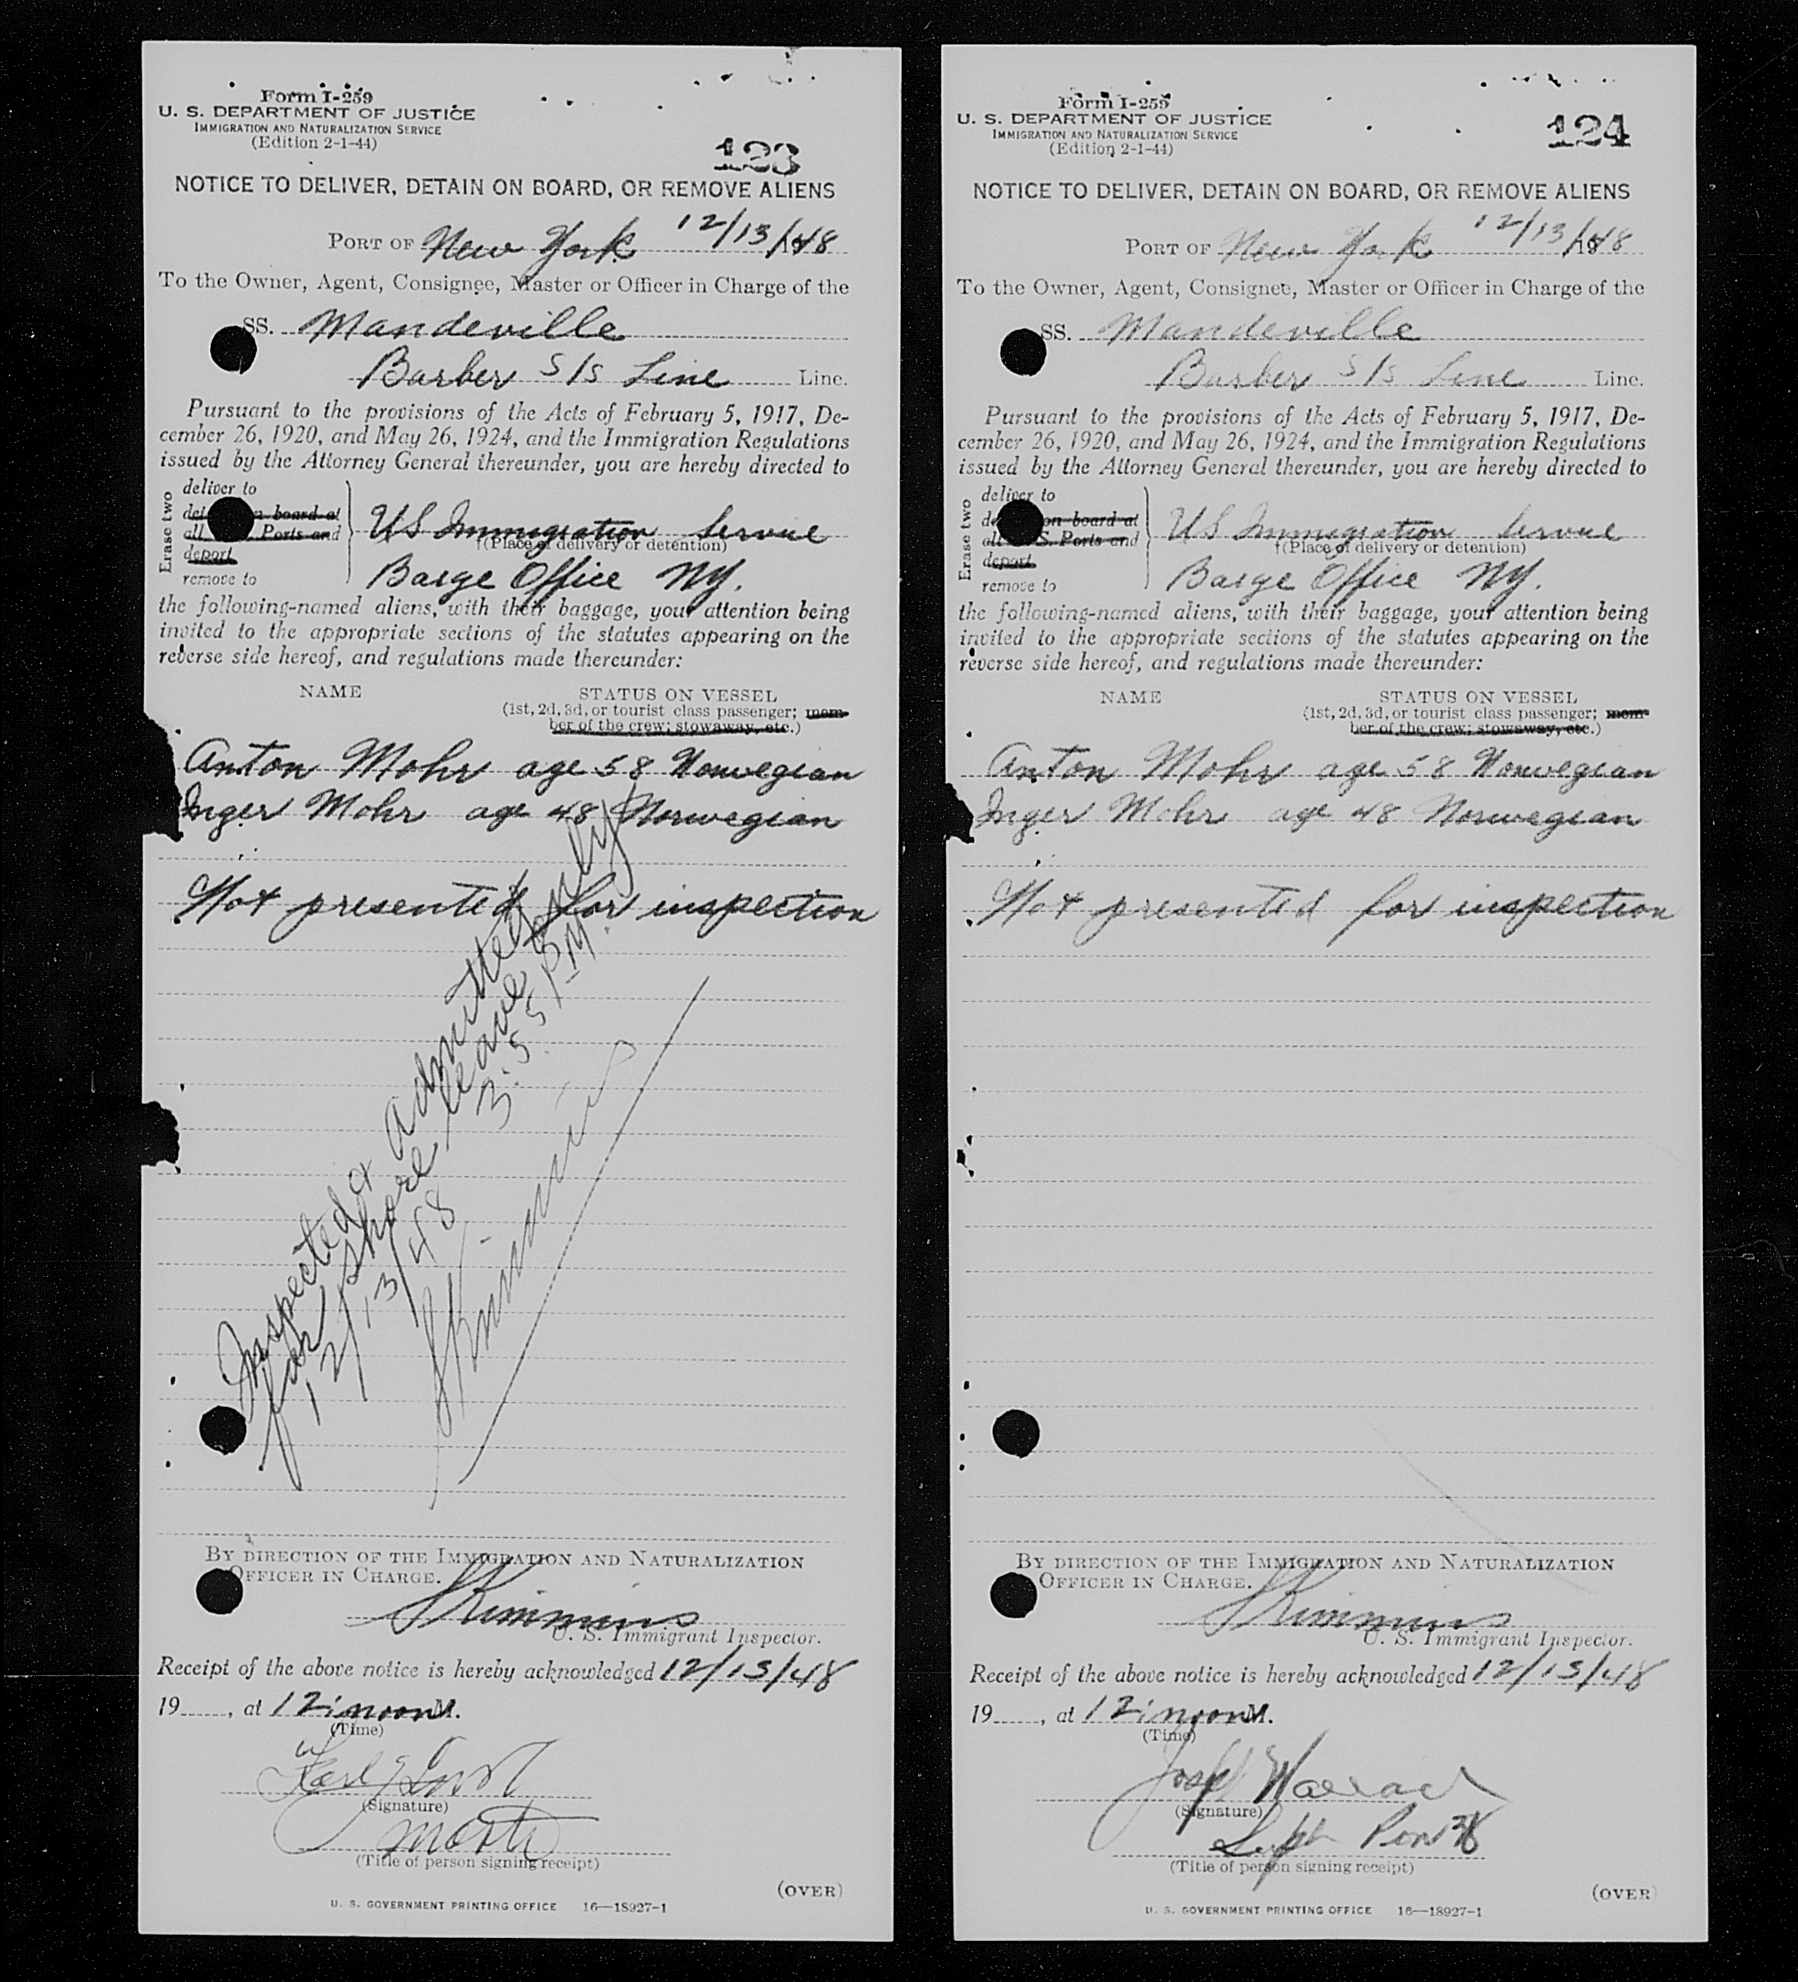 Form I-259
U. S. DEPARTMENT OF JUSTICE
IMMIGRATION AND NATURALIZATION SERVICE
(Edition 2-1-44)
123
NOTICE TO DELIVER, DETAIN ON BOARD, OR REMOVE ALIENS
PORT OF New York 12/13/1948
To the Owner, Agent, Consignee, Master or Officer in Charge of the
SS. Mandeville
Barber S/S Line Line.
Pursuant to the provisions of the Acts of February 5, 1917, De-
cember 26, 1920, and May 26, 1924, and the Immigration Regulations
issued by the Attorney General thereunder, you are hereby directed to
Erase two
deliver to
on board at
all Ports and
deport
remove to
US Immigration Service
†(Place of delivery or detention)
Barge Office NY.
the following-named aliens, with their baggage, your attention being
invited to the appropriate sections of the statutes appearing on the
reverse side hereof, and regulations made thereunder:
NAME STATUS ON VESSEL
(1st, 2d, 3d, or tourist class passenger; mem-
ber of the crew; stowaway, etc.)
Anton Mohr age 58 Norwegian
Inger Mohr age 48 Norwegian
Not presented for inspection
Inspected & admitted only
for shore leave
12/13/48 3:55 PM.
SKimmins
BY DIRECTION OF THE IMMIGRATION AND NATURALIZATION
OFFICER IN CHARGE.
SKimmins
U. S. Immigrant Inspector.
Receipt of the above notice is hereby acknowledged 12/13/48
19, at 12 noon M.
(Time)
(Signature)
(Title of person signing receipt)
(OVER)
U. S. GOVERNMENT PRINTING OFFICE 16—18927-1
Form I-259
U. S. DEPARTMENT OF JUSTICE
IMMIGRATION AND NATURALIZATION SERVICE
(Edition 2-1-44)
124
NOTICE TO DELIVER, DETAIN ON BOARD, OR REMOVE ALIENS
PORT OF New York 12/13/1948
To the Owner, Agent, Consignee, Master or Officer in Charge of the
SS. Mandeville
Barber S/S Line Line.
Pursuant to the provisions of the Acts of February 5, 1917, De-
cember 26, 1920, and May 26, 1924, and the Immigration Regulations
issued by the Attorney General thereunder, you are hereby directed to
Erase two
deliver to
on board at
all U. S. Ports and
deport
remove to
US Immigration Service
†(Place of delivery or detention)
Barge Office NY.
the following-named aliens, with their baggage, your attention being
invited to the appropriate sections of the statutes appearing on the
reverse side hereof, and regulations made thereunder:
NAME STATUS ON VESSEL
(1st, 2d, 3d, or tourist class passenger; mem-
ber of the crew; stowaway, etc.)
Anton Mohr age 58 Norwegian
Inger Mohr age 48 Norwegian
Not presented for inspection
BY DIRECTION OF THE IMMIGRATION AND NATURALIZATION
OFFICER IN CHARGE.
SKimmins
U. S. Immigrant Inspector.
Receipt of the above notice is hereby acknowledged 12/13/48
19, at 12 noon M.
(Time)
(Signature)
(Title of person signing receipt)
(OVER)
U. S. GOVERNMENT PRINTING OFFICE 16—18927-1